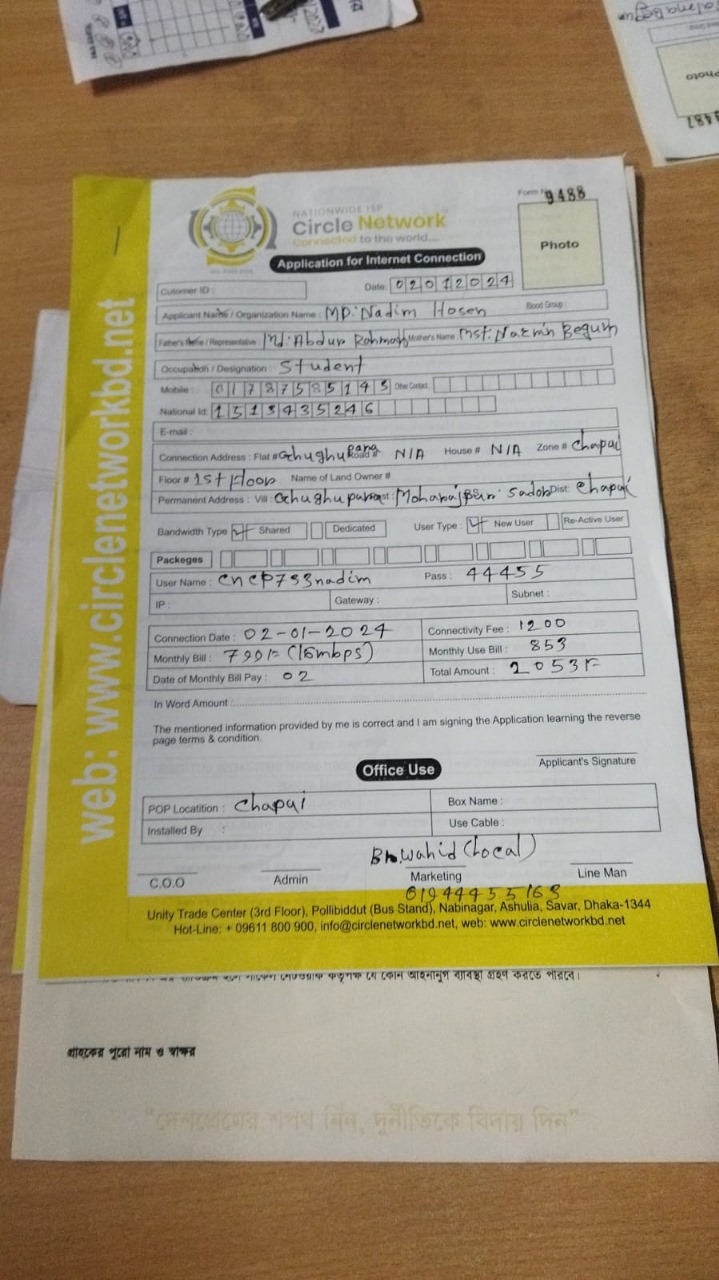 Form No 9488
NATIONWIDE ISP
Circle Network
Connected to the world....
Photo
Application for Internet Connection
Cusomer ID : Date: 02012024
Applicant Name / Organization Name : MD. Nadim Hosen Blood Group :
Father's Name / Representative : Md. Abdur Rohman Mother's Name : Mst. Nazmin Begum
Occupation / Designation : Student
Mobile : 01787585143 Other Contact :
National Id: 1513435246
E-mail :
Connection Address : Flat # Ghughu para Road # N/A House # N/A Zone # Chapai
Floor # 1st Floor Name of Land Owner #
Permanent Address : Vill : Ghughupara Moharajpur Sador Dist: Chapai
Bandwidth Type Shared Dedicated User Type : New User Re-Active User
Packeges
User Name : cncp793nadim Pass : 44455
IP : Gateway : Subnet :
Connection Date : 02-01-2024 Connectivity Fee : 1200
Monthly Bill : 799/= (15mbps) Monthly Use Bill : 853
Date of Monthly Bill Pay : 02 Total Amount : 2053/=
In Word Amount :
The mentioned information provided by me is correct and I am signing the Application learning the reverse
page terms & condition.
Applicant's Signature
Office Use
POP Locatition : Chapai Box Name :
Installed By : Use Cable :
Wahid (Local)
C.O.O Admin Marketing Line Man
01944455163
Unity Trade Center (3rd Floor), Pollibiddut (Bus Stand), Nabinagar, Ashulia, Savar, Dhaka-1344
Hot-Line: + 09611 800 900, info@circlenetworkbd.net, web: www.circlenetworkbd.net
web: www.circlenetworkbd.net
গ্রাহকের পুরো নাম ও স্বাক্ষর
"দেশপ্রেমের শপথ নিন, দুর্নীতিকে বিদায় দিন"
Photo
9487